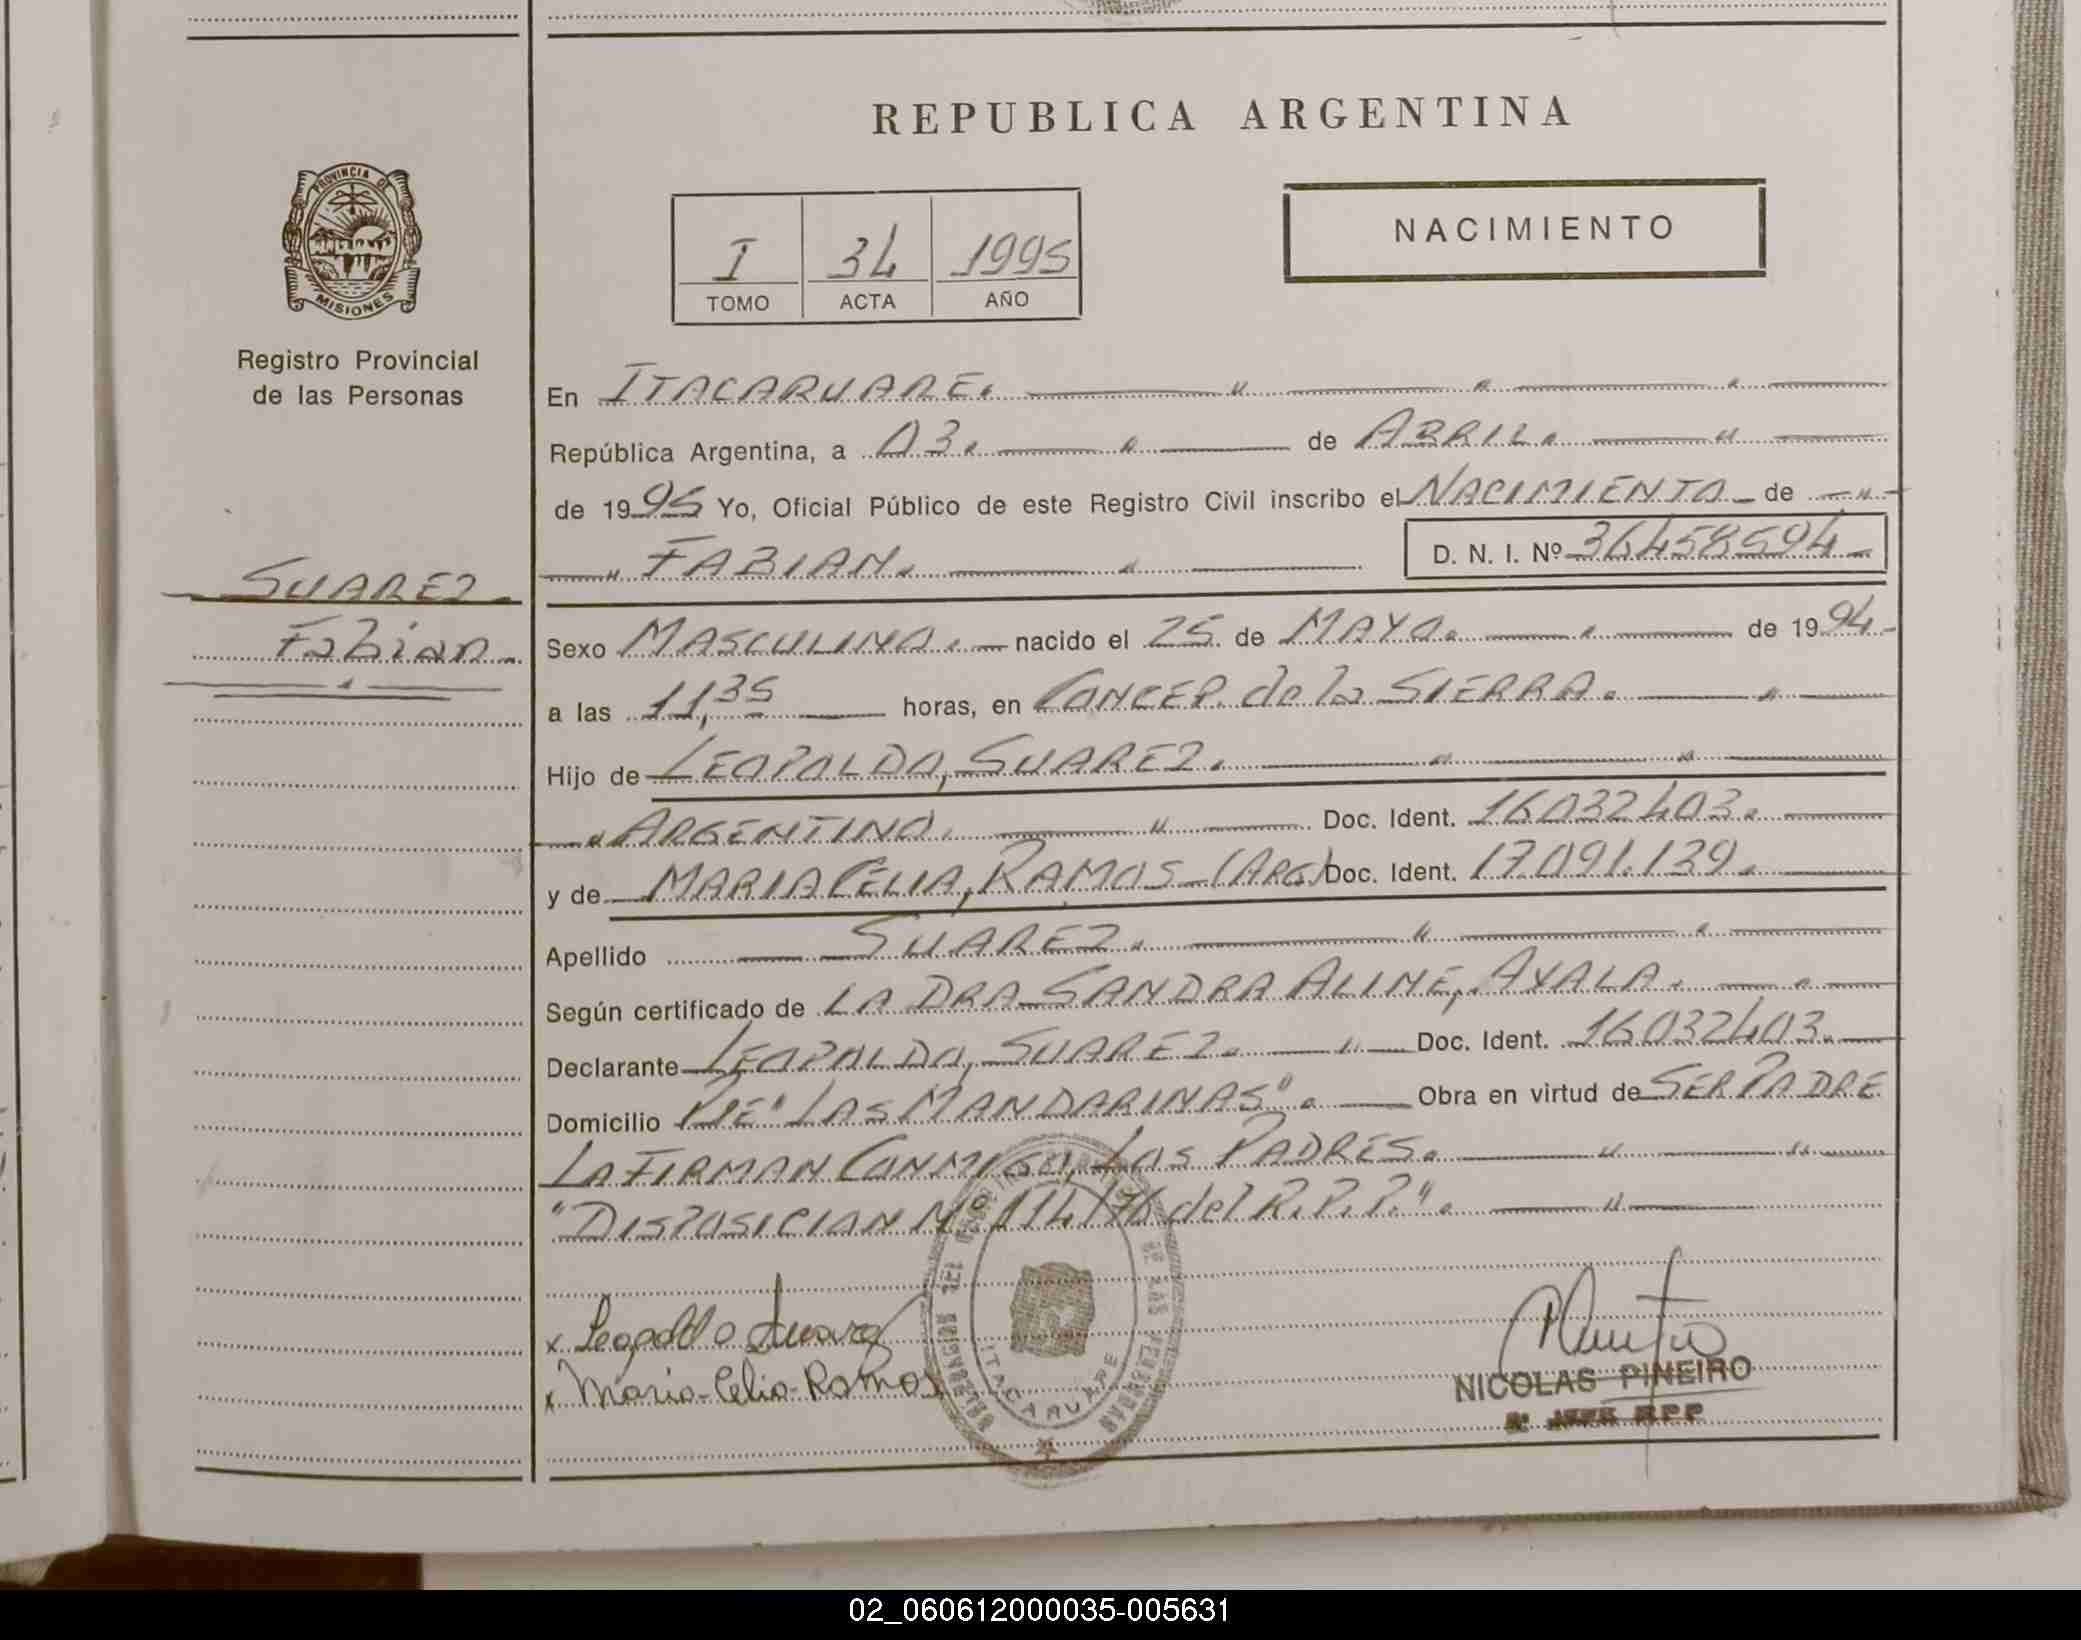 REPUBLICA ARGENTINA
PROVINCIA DE
MISIONES
Registro Provincial
de las Personas
SUAREZ
Fabian
NACIMIENTO
I 34 1995
TOMO ACTA AÑO
En ITACARUARE.
República Argentina, a 03. de ABRIL.
de 1995 Yo, Oficial Público de este Registro Civil inscribo el NACIMIENTO de
FABIAN. D. N. I. Nº 36458594
Sexo MASCULINO. nacido el 25 de MAYO. de 1994
a las 11,35 horas, en CONCEP. de la SIERRA.
Hijo de LEOPOLDO, SUAREZ.
ARGENTINO. Doc. Ident. 16032403.
y de MARIA CELIA, RAMOS (ARG) Doc. Ident. 17.091.139.
Apellido SUAREZ.
Según certificado de LA DRA SANDRA ALINE, AYALA.
Declarante LEOPOLDO, SUAREZ. Doc. Ident. 16032403.
Domicilio PJE "LAS MANDARINAS". Obra en virtud de SER PADRE
LA FIRMAN CONMIGO, LOS PADRES.
"DISPOSICION Nº 114/76 del R.P.P.".
x Leopoldo Suarez
x Maria Celia Ramos
ITACARUARE
NICOLAS PINEIRO
JEFE RPP
02_060612000035-005631